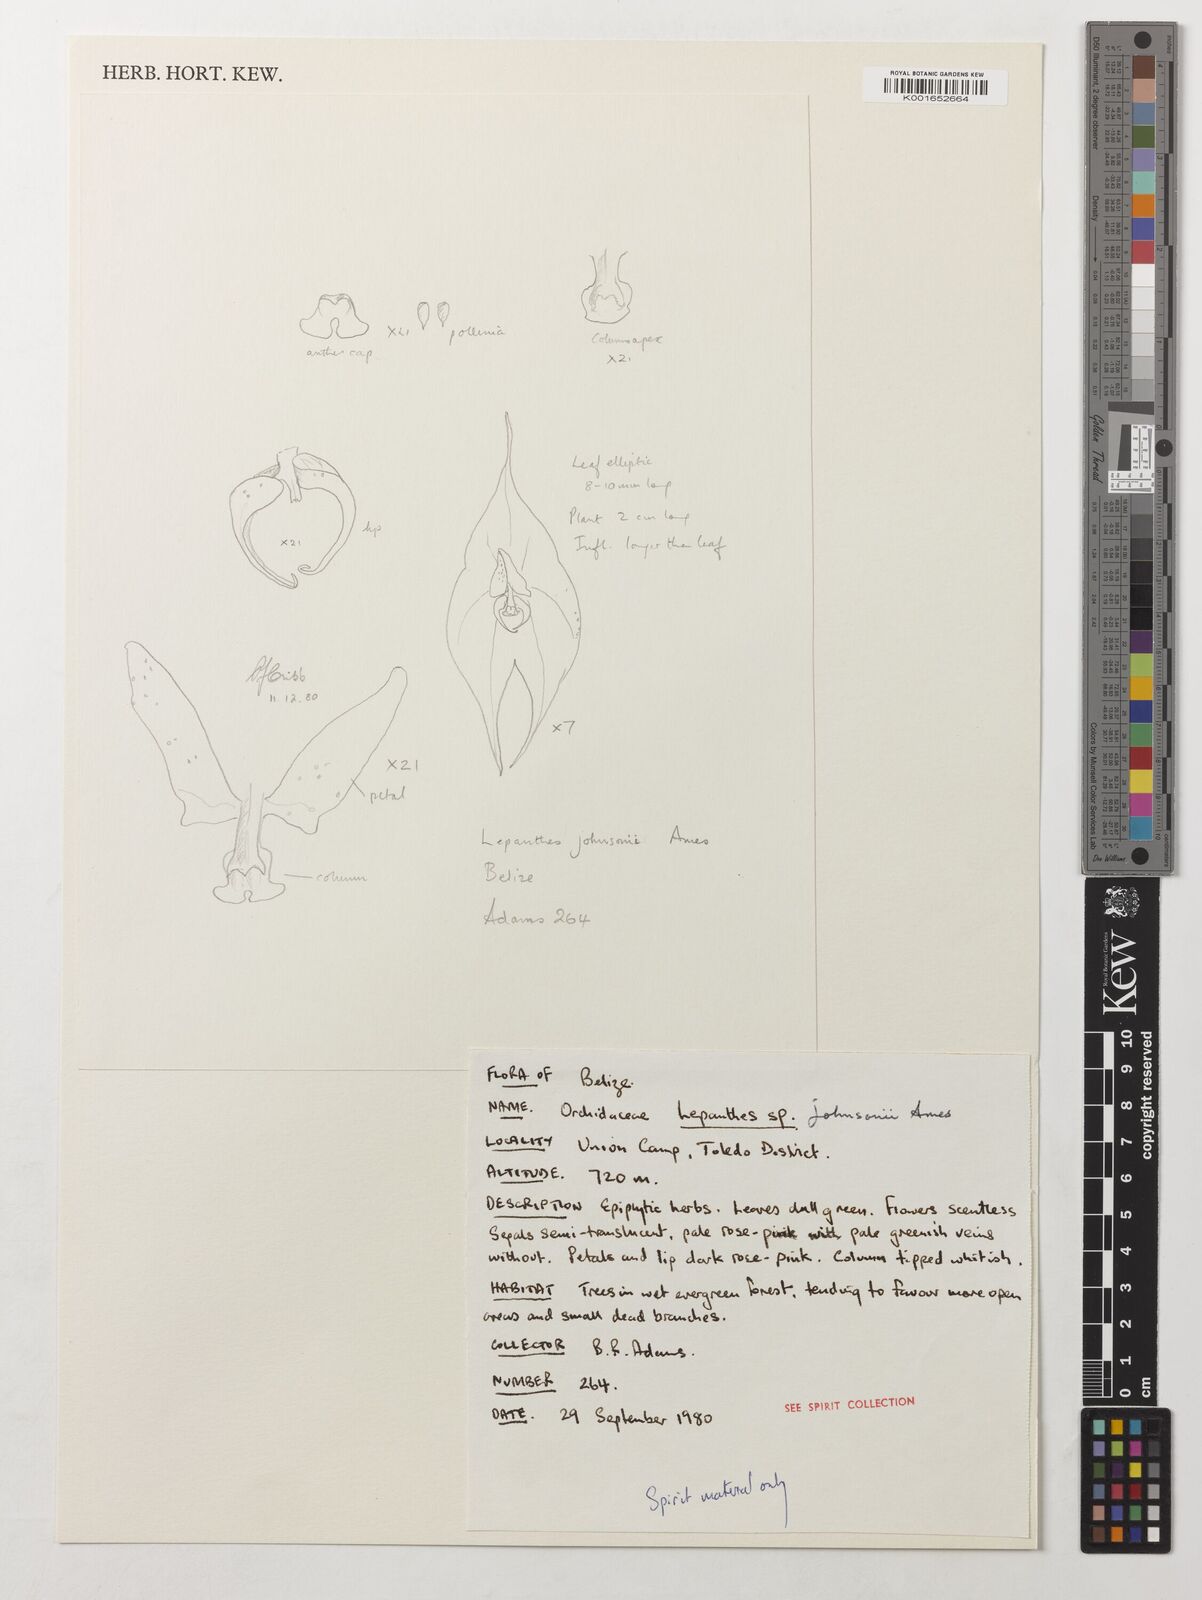 HERB. HORT. KEW.
ROYAL BOTANIC GARDENS KEW
K001652664
anther cap
x21
pollinia
Column apex
x21
lip
x21
Leaf elliptic
8-10 mm long
Plant 2 cm long
Infl. longer than leaf
x7
PJCribb
11.12.80
x21
petal
column
Lepanthes johnsonii Ames
Belize
Adams 264
FLORA OF Belize.
NAME. Orchidaceae Lepanthes sp. johnsonii Ames
LOCALITY Union Camp, Toledo District.
ALTITUDE. 720 m.
DESCRIPTION Epiphytic herbs. Leaves dull green. Flowers scentless
Sepals semi-translucent, pale rose-pink with pale greenish veins
without. Petals and lip dark rose-pink. Column tipped whitish.
HABITAT Trees in wet evergreen forest, tending to favour more open
areas and small dead branches.
COLLECTOR B.R. Adams.
NUMBER 264.
DATE. 29 September 1980
SEE SPIRIT COLLECTION
Spirit material only
Golden Thread
Colors by Munsell Color Services Lab
Don Williams
D50 Illuminant, 2 degree observer
Density
inches
centimetres
Royal Botanic Gardens
Kew
0 1 2 3 4 5 6 7 8 9 10
cm
copyright reserved